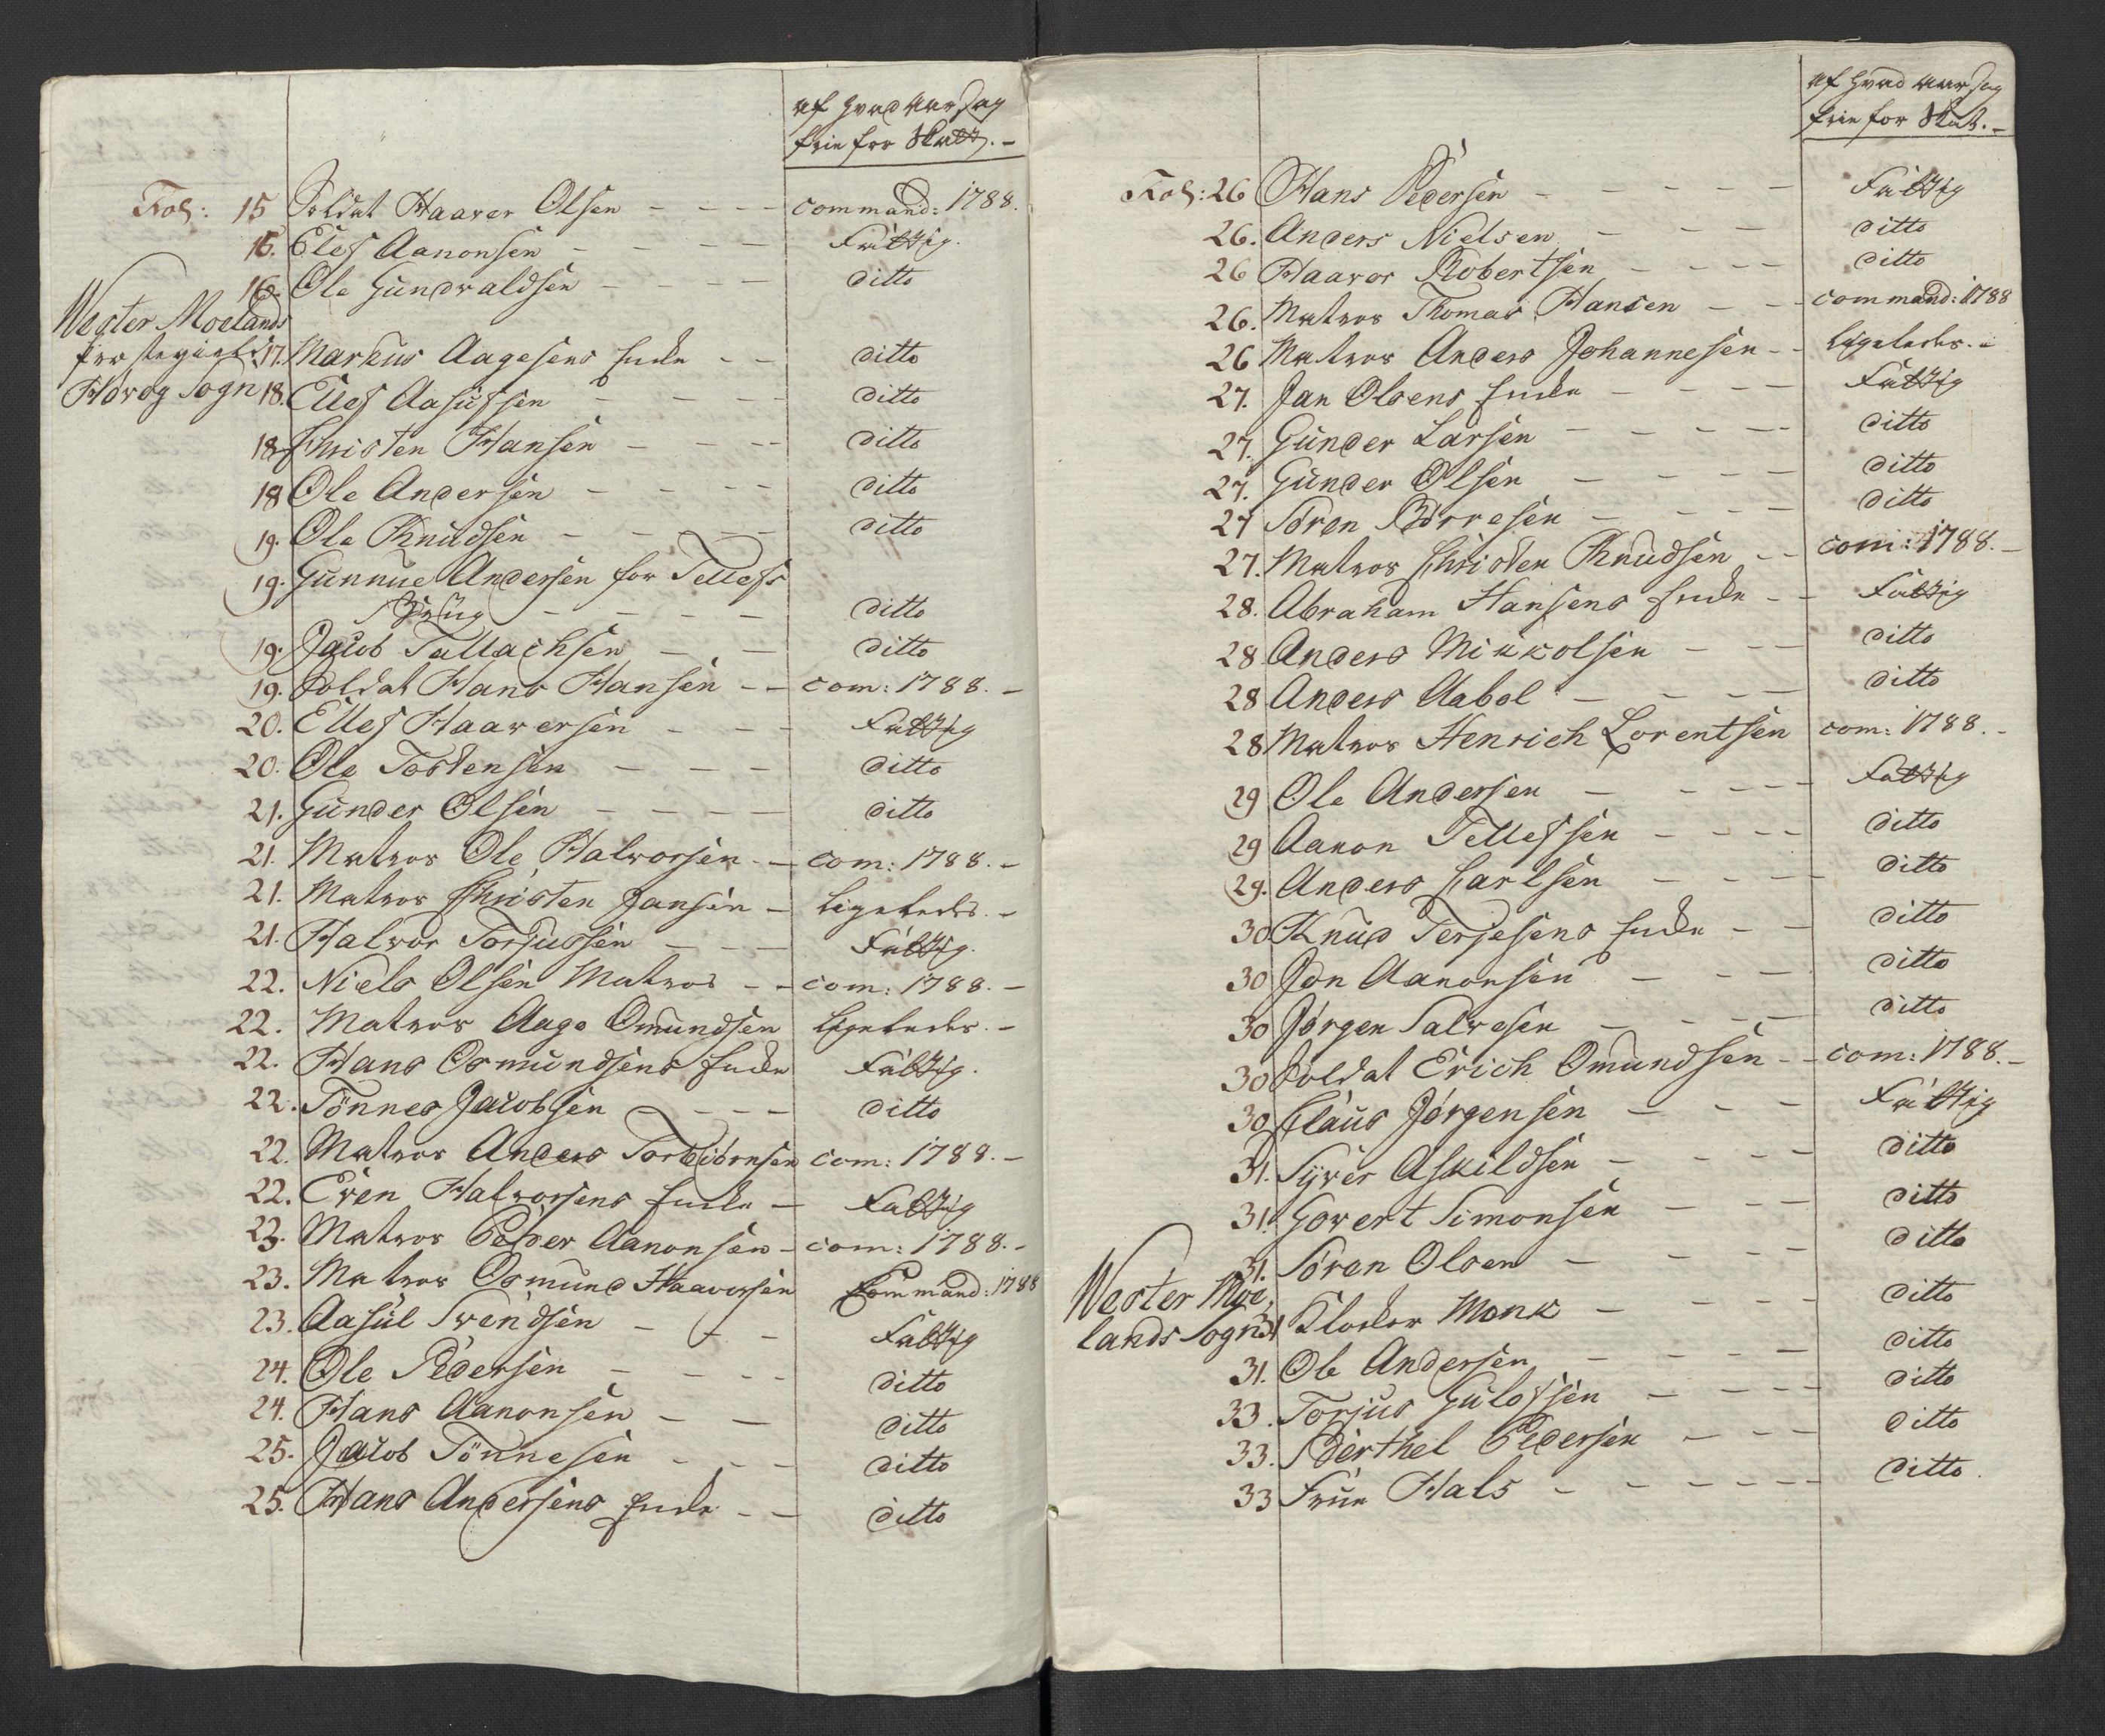 af hvad Aarsag
frie for Skatt.-
Fol: 15 Soldat Haaver Olsen - - - command: 1788.
16. Elef Aanonsen - - - - Fattig.
16. Ole Gundvaldsen - - - - ditto
Wester Moelands
Præstegield
17. Markus Aagesens Encke - - ditto
Høvog Sogn 18. Ellef Aasulfsen - - - - ditto
18 Christen Hansen - - - ditto
18 Ole Andersen - - - - ditto
19. Ole Knudsen - - - - ditto
19. Gunnue Andersen for Tellefs
- - - - ditto
19. Jacob Tallachsen - - ditto
19. Soldat Hans Hansen - - com: 1788. -
20. Ellef Haaversen - - - Fattig
20. Ole Tostensen - - - - ditto
21. Gunder Olsen - - - - ditto
21. Matros Ole Halvorsen - - com: 1788. -
21. Matros Christen Jansen - ligeledes. -
21. Halvor Torjussen - - - Fattig.
22. Niels Olsen Matros - - com: 1788. -
22. Matros Aage Omundsen ligeledes. -
22. Hans Osmundsens Encke Fattig.
22. Tönnes Jacobsen - - - ditto
22. Matros Anders Torbiörnsen com: 1788. -
22. Even Halvorsens Encke - Fattig
23. Matros Peder Aanonsen - com: 1788. -
23. Matros Osmund Haavorsen Command: 1788
23. Aasul Svendsen - - - Fattig
24. Ole Pedersen - - - - ditto
24. Hans Aanonsen - - ditto
25. Jacob Tönnesen - - - ditto
25. Hans Andersens Encke - - ditto
af hvad Aarsag
frie for Skat. -
Fol: 26 Hans Pedersen - - - - - Fattig
26. Anders Nielsen - - - - ditto
26 Haavor Robertsen - - - - ditto
26. Matros Thomas Hansen - - command: 1788
26 Matros Anders Johannesen - - ligeledes. -
27. Jan Olsens Encke - - - - Fattig
27. Gunder Larsen - - - - - ditto
27. Gunder Olsen - - - - ditto
27 Sören Börresen - - - - ditto
27. Matros Christen Knudsen - - com: 1788. -
28. Abraham Hansens Encke - - Fattig
28 Anders Mikkolsen - - - ditto
28 Anders Aabol - - - - ditto
28 Matros Henrich Lorentsen com: 1788. -
29 Ole Andersen - - - - - Fattig
29 Aanon Tellefsen - - - - ditto
29. Anders Carlsen - - - - ditto
30 Knud Terjesens Encke - - ditto
30 Jon Aanonsen - - - ditto
30 Jørgen Salvesen - - - - ditto
30 Soldat Erich Omundsen - - com: 1788. -
30 Claus Jørgensen - - - Fattig
31. Syver Askildsen - - - - ditto
31. Govert Simonsen - - - ditto
31. Sören Olsen - - - - ditto
Wester Moe-
lands Sogn 31 Klocker Monk - - - - ditto
31. Ole Andersen - - - - ditto
33. Torjus Gulofsen - - - - ditto
33. Berthel Pedersen - - - ditto
33 Frue Hals - - - - - ditto.